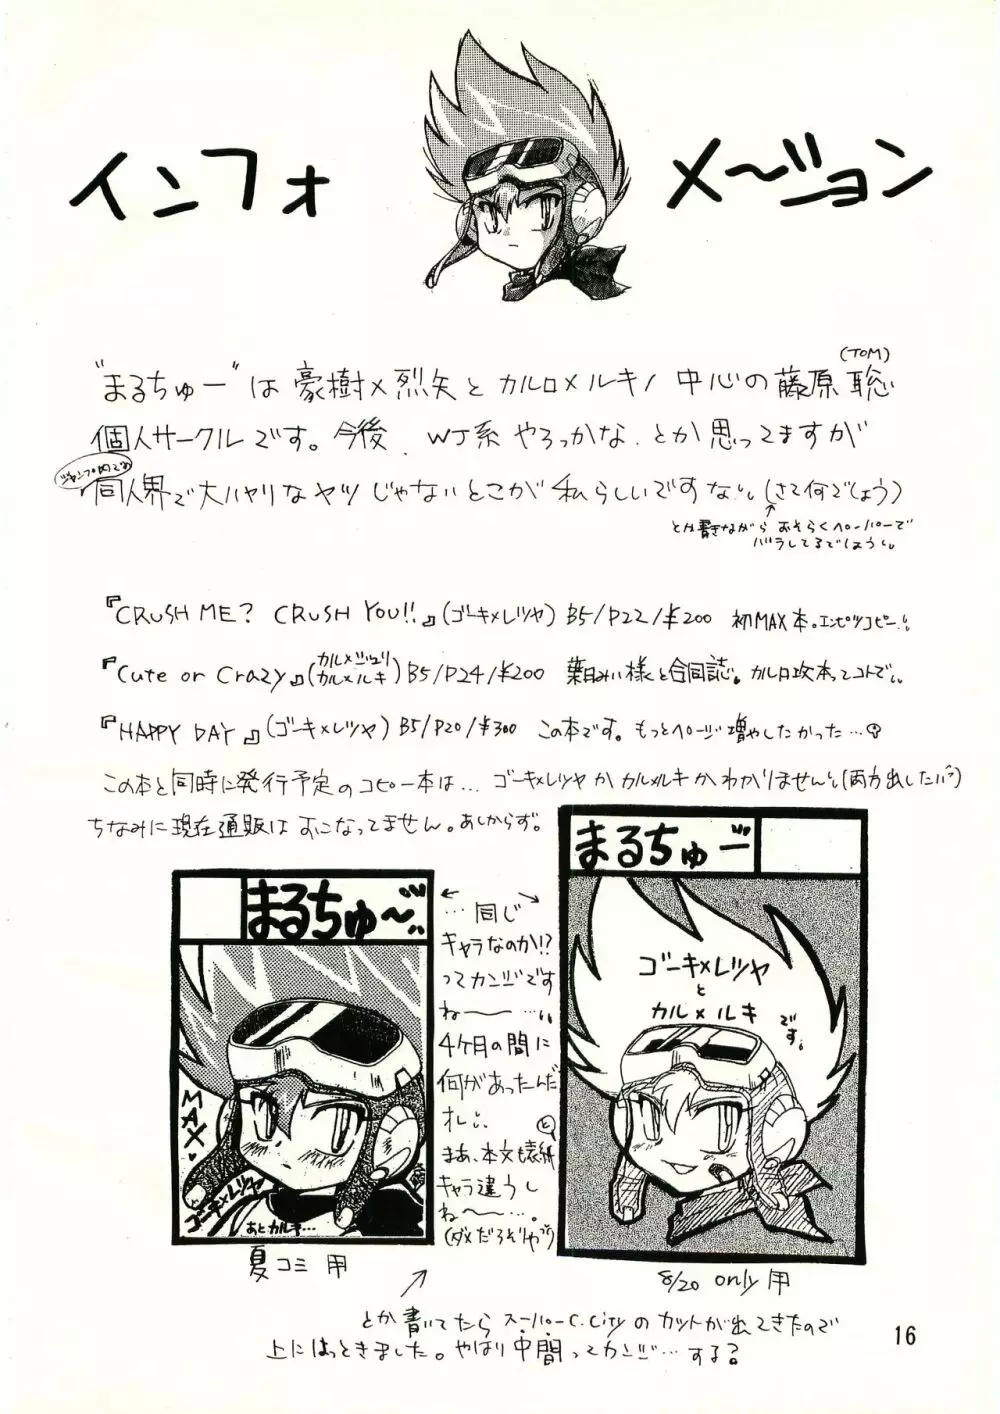 インフォメ〜ション
(TOM)
"まるちゅー"は豪樹×烈矢とカルロ×ルキノ中心の藤原聡
個人サークルです。今後、WJ系やろっかな、とか思ってますが
同人界で大ハヤリなヤツじゃないとこが私らしいですな。(さて何でしょう)
↑
とか書きながら おそらくペーパーで
バラしてるでしょう。
『CRUSH ME? CRUSH YOU!!』(ゴーキ×レツヤ) B5/P22/¥200 初MAX本。エンピツコピー…
『Cute or Crazy』(カル×ジュリ カル×ルキ) B5/P24/¥200 葉月みい様と合同誌。カルロ攻本ってコトで…
『HAPPY DAY』(ゴーキ×レツヤ) B5/P20/¥300 この本です。もっとページ増やしたかった…
この本と同時に発行予定のコピー本は… ゴーキ×レツヤかカル×ルキかわかりません。(両方出したい)
ちなみに現在通販はおこなってません。あしからず。
まるちゅ〜
MAX
ゴーキ×レツヤ
あとカルキ…
夏コミ用
← →
…同じ
キャラなのか!?
ってカンジです
ね〜…
4ヶ月の間に
何があったんだ
オレ…
まあ、本文も表紙
キャラ違うし
ね〜…。
(ダメだろそりゃ)
まるちゅー
ゴーキ×レツヤ
と
カル×ルキ
です。
8/20 only 用
とか書いてたらスーパーC.Cityのカットが出てきたので
上にはっときました。やはり中間ってカンジ…する?
16